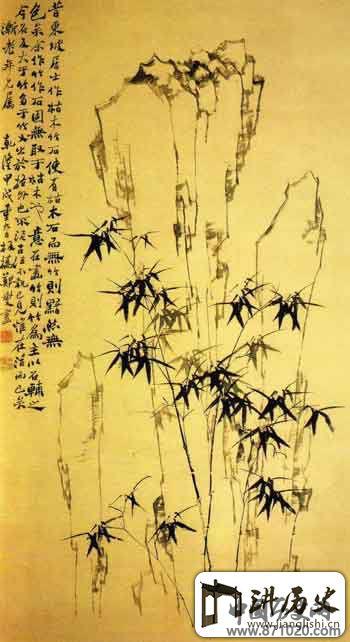 昔東坡居士作枯木竹石使有枯木石而無竹則黯然無
色矣余作竹作石固無取于枯木也意在畫竹則竹為主以石輔之
今石反大于竹多于竹又出於格外也不泥古法不執己見惟在活而已矣
漸老年兄屬 乾隆甲戌重九日板橋鄭燮畫
讲历史
www.jianglishi.cn
www.871020.com